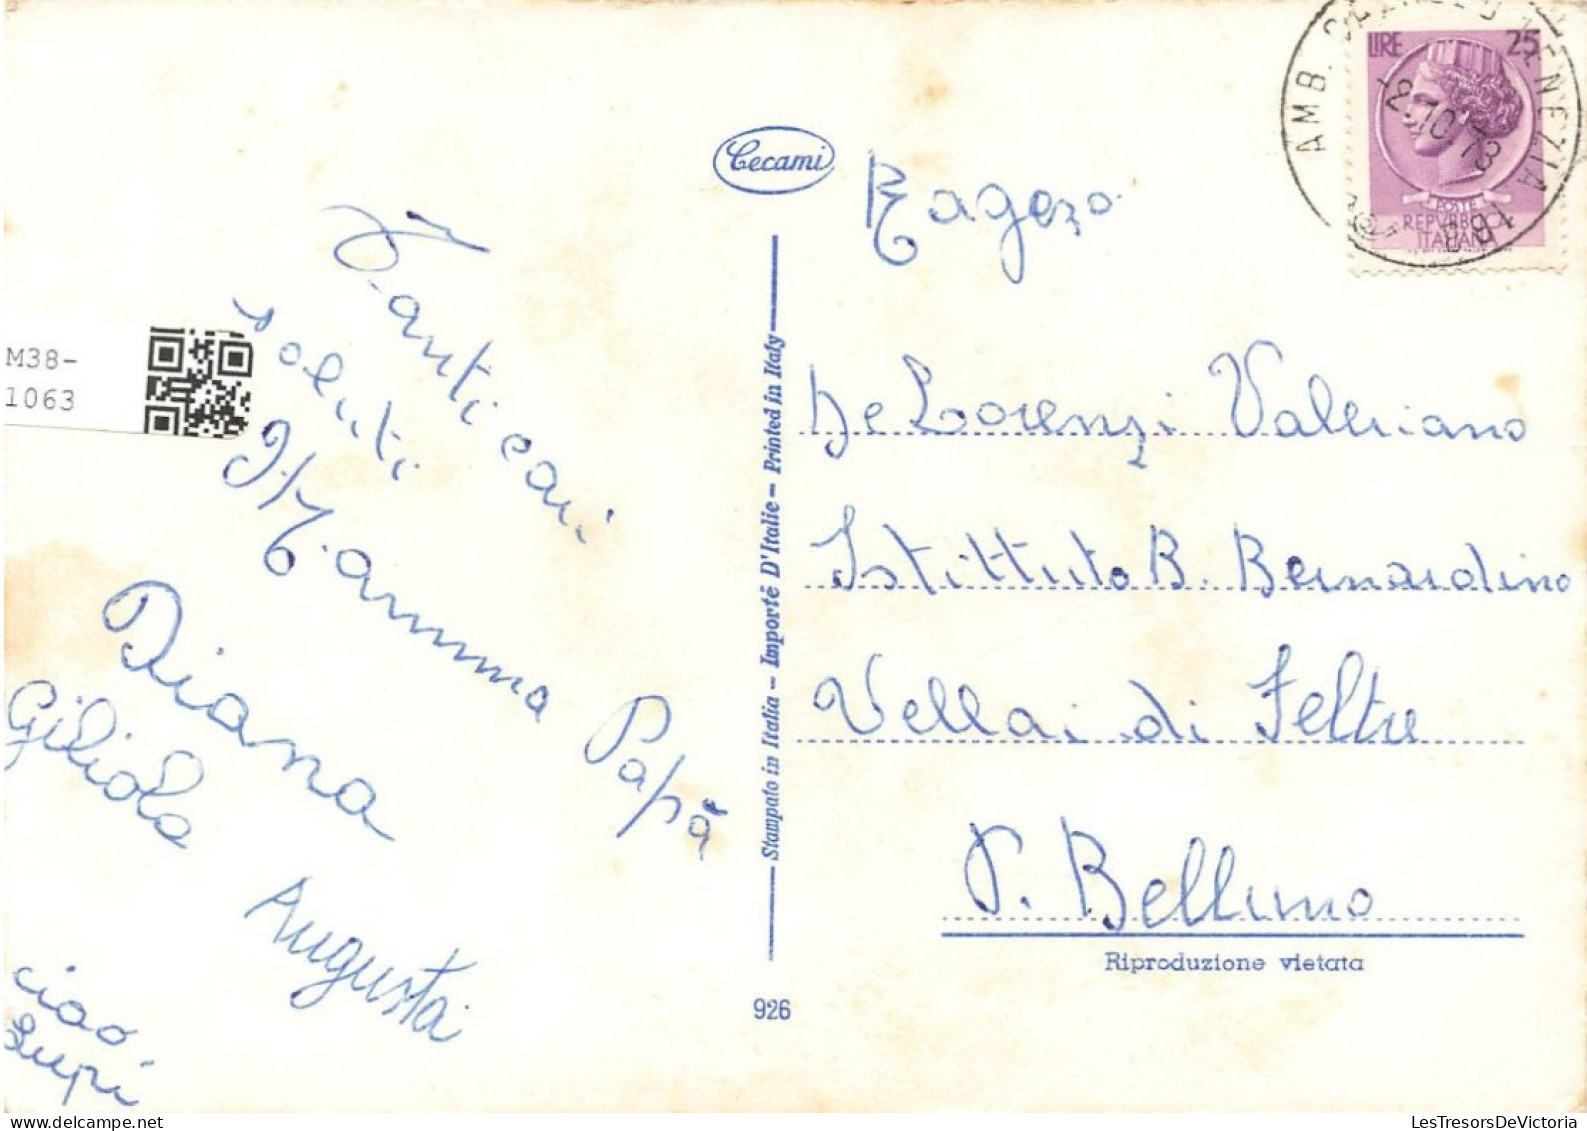 M38-
1063
Tanti cari
saluti
Mamma Papà
Diana
Giliola
Augusta
ciao
Lupi
Cecami
Stampato in Italia - Importé D'Italie - Printed in Italy
926
LIRE 25
POSTE
REPVBBLICA
ITALIANA
AMB. VENEZIA
2.10.73
Ragazo
De Lorenzi Valeriano
Istittuto B. Bernardino
Vellai di Feltre
P. Belluno
Riproduzione vietata
LesTresorsDeVictoria